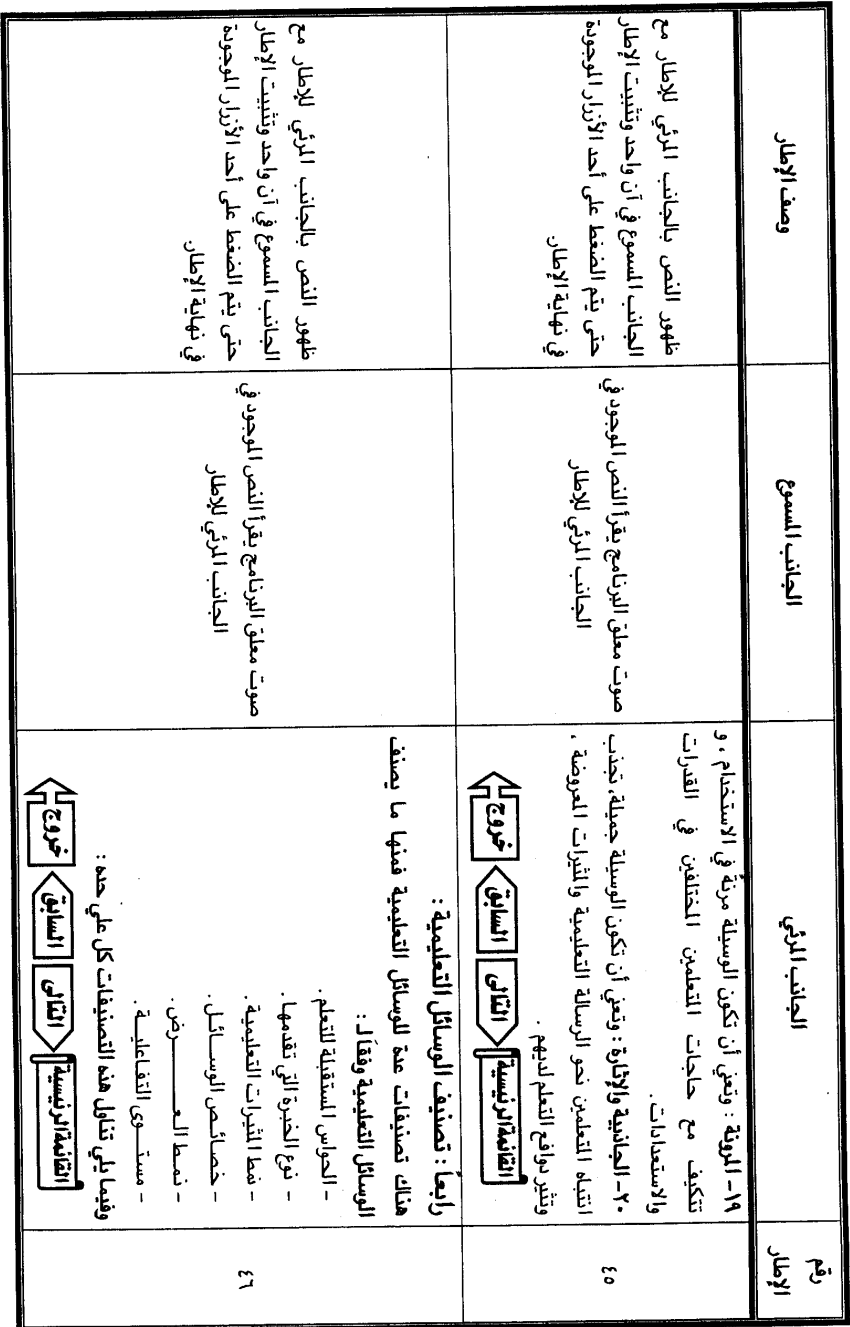 رقم
الإطار
الجانب المرئي
الجانب المسموع
وصف الإطار
٤٥
١٩- المرونة : وتعني أن تكون الوسيلة مرنةً في الاستخدام ، و
تتكيف مع حاجات المتعلمين المختلفين في القدرات
والاستعدادات.
٢٠- الجاذبية والإثارة : وتعني أن تكون الوسيلة جميلة، تجذب
انتباه المتعلمين نحو الرسالة التعليمية والمثيرات المعروضة ،
وتثير دوافع التعلم لديهم .
القائمة الرئيسية
التالى
السابق
خروج
صوت معلق البرنامج يقرأ النص الموجود في
الجانب المرئي للإطار
ظهور النص بالجانب المرئي للإطار مع
الجانب المسموع في آن واحد وتثبيت الإطار
حتى يتم الضغط على أحد الأزرار الموجودة
في نهاية الإطار.
٤٦
رابعاً : تصنيف الوسائل التعليمية :
هناك تصنيفات عدة للوسائل التعليمية فمنها ما يصنف
الوسائل التعليمية وفقاً لـ :
- الحواس المستقبلة للتعلم .
- نوع الخبرة التي تقدمها .
- نمط المثيرات التعليمية .
- خصـائـص الوسـائـل .
- نمـط الـعـــرض .
- مستـوى التفـاعليـة .
وفيما يلي تناول هذه التصنيفات كل علي حده :
القائمة الرئيسية
التالى
السابق
خروج
صوت معلق البرنامج يقرأ النص الموجود في
الجانب المرئي للإطار
ظهور النص بالجانب المرئي للإطار مع
الجانب المسموع في آن واحد وتثبيت الإطار
حتى يتم الضغط على أحد الأزرار الموجودة
في نهاية الإطار.